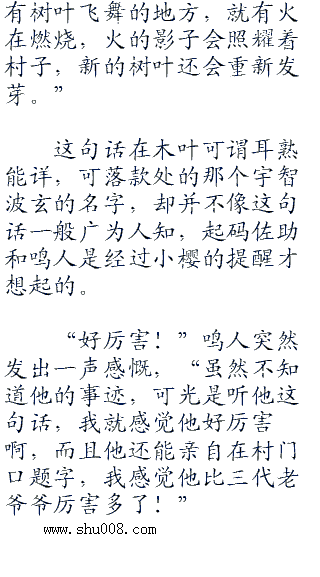 有树叶飞舞的地方，就有火
在燃烧，火的影子会照耀着
村子，新的树叶还会重新发
芽。”
这句话在木叶可谓耳熟
能详，可落款处的那个宇智
波玄的名字，却并不像这句
话一般广为人知，起码佐助
和鸣人是经过小樱的提醒才
想起的。
“好厉害！”鸣人突然
发出一声感慨，“虽然不知
道他的事迹，可光是听他这
句话，我就感觉他好厉害
啊，而且他还能亲自在村门
口题字，我感觉他比三代老
爷爷厉害多了！”
www.shu008.com